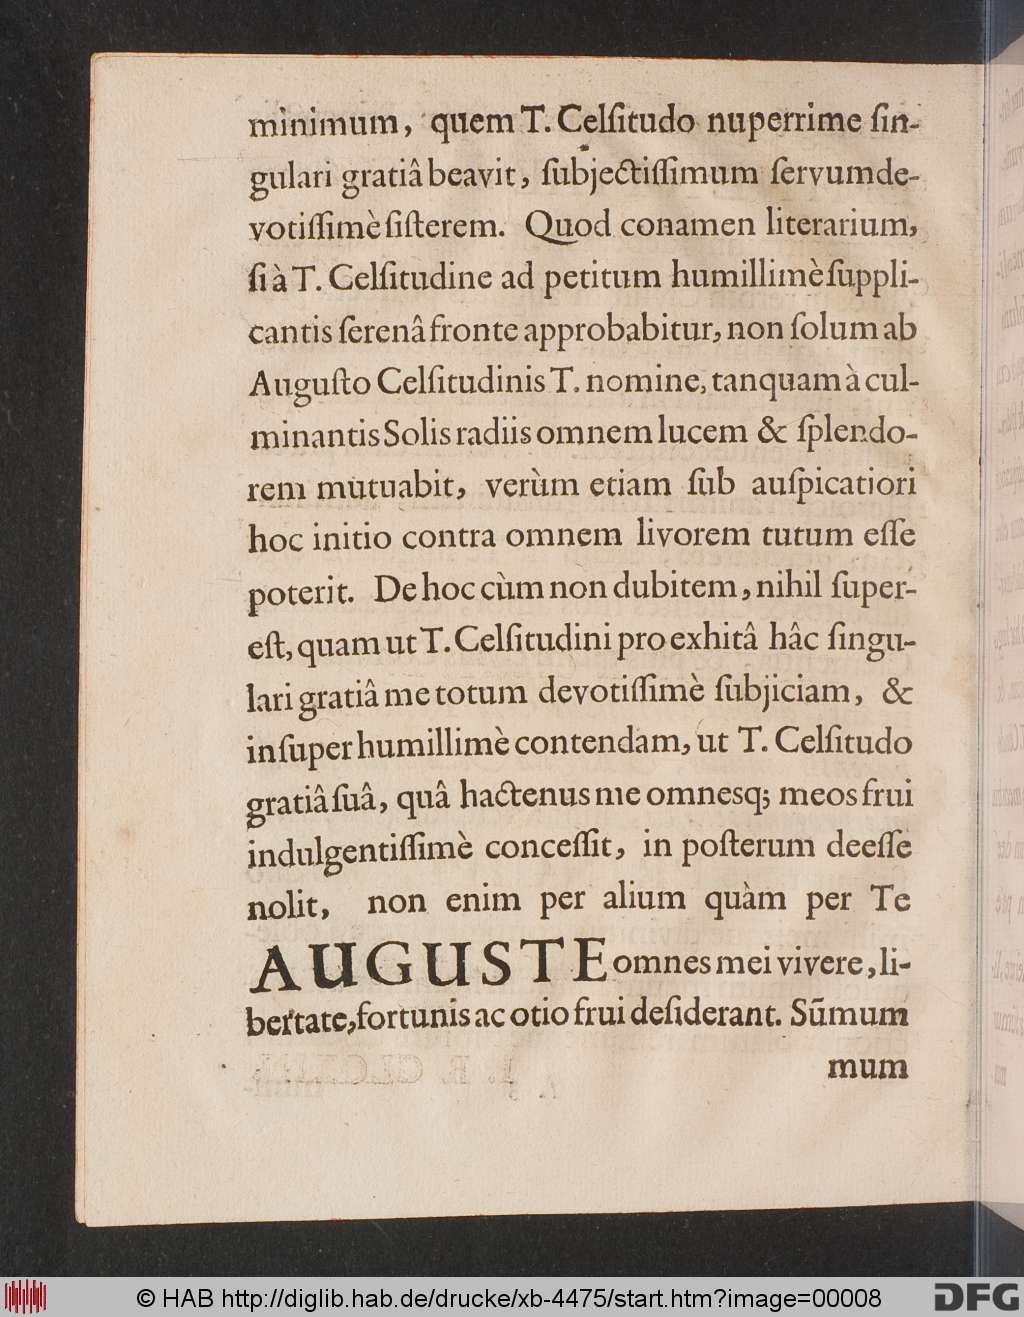 minimum, quem T. Celſitudo nuperrime ſin-
gulari gratiâ beavit, ſubjectiſſimum ſervum de-
votiſſimè ſiſterem. Quod conamen literarium,
ſi à T. Celſitudine ad petitum humillimè ſuppli-
cantis ſerenâ fronte approbabitur, non ſolum ab
Auguſto Celſitudinis T. nomine, tanquam à cul-
minantis Solis radiis omnem lucem & ſplendo-
rem mutuabit, verùm etiam ſub auſpicatiori
hoc initio contra omnem livorem tutum eſſe
poterit. De hoc cùm non dubitem, nihil ſuper-
eſt, quam ut T. Celſitudini pro exhitâ hâc ſingu-
lari gratiâ me totum devotiſſimè ſubjiciam, &
inſuper humillimè contendam, ut T. Celſitudo
gratiâ ſuâ, quâ hactenus me omnesq; meos frui
indulgentiſſimè conceſſit, in poſterum deeſſe
nolit, non enim per alium quàm per Te
AUGUSTE omnes mei vivere, li-
bertate, fortunis ac otio frui deſiderant. Sũmum
mum
© HAB http://diglib.hab.de/drucke/xb-4475/start.htm?image=00008
DFG